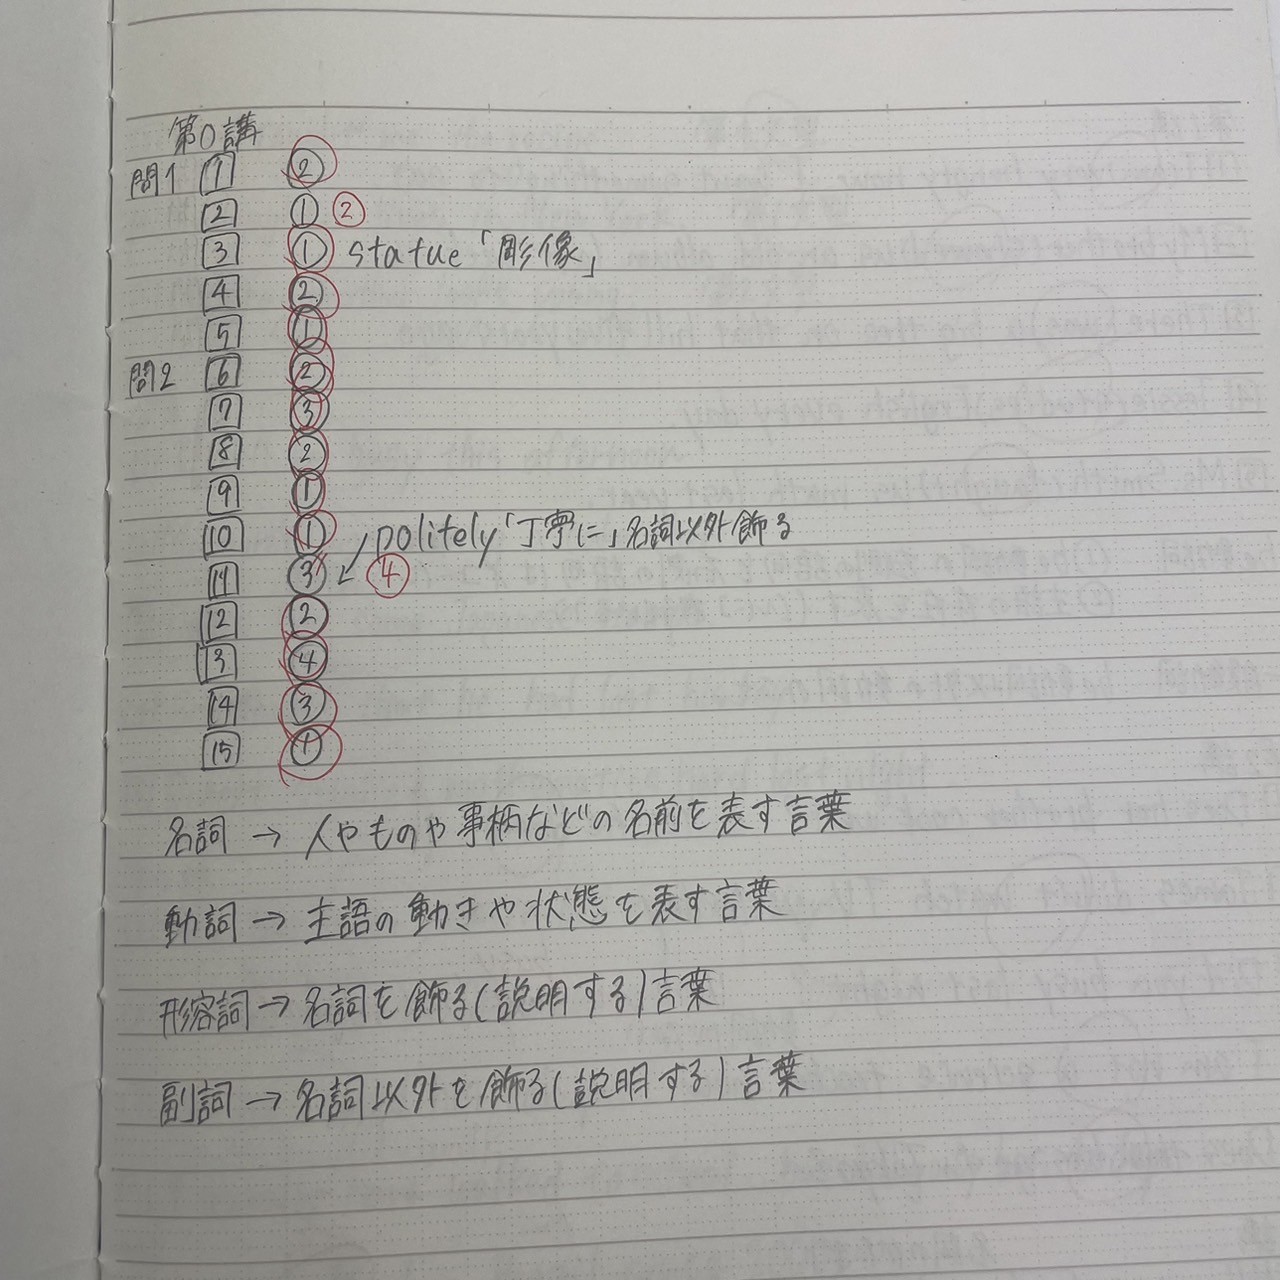 第0講
問1 1 ②
2 ① ②
3 ① statue「彫像」
4 ②
5 ①
問2 6 ②
7 ③
8 ②
9 ①
10 ① politely「丁寧に」名詞以外飾る
11 ③ ④
12 ②
13 ④
14 ③
15 ①
名詞 → 人やものや事柄などの名前を表す言葉
動詞 → 主語の動きや状態を表す言葉
形容詞 → 名詞を飾る(説明する)言葉
副詞 → 名詞以外を飾る(説明する)言葉